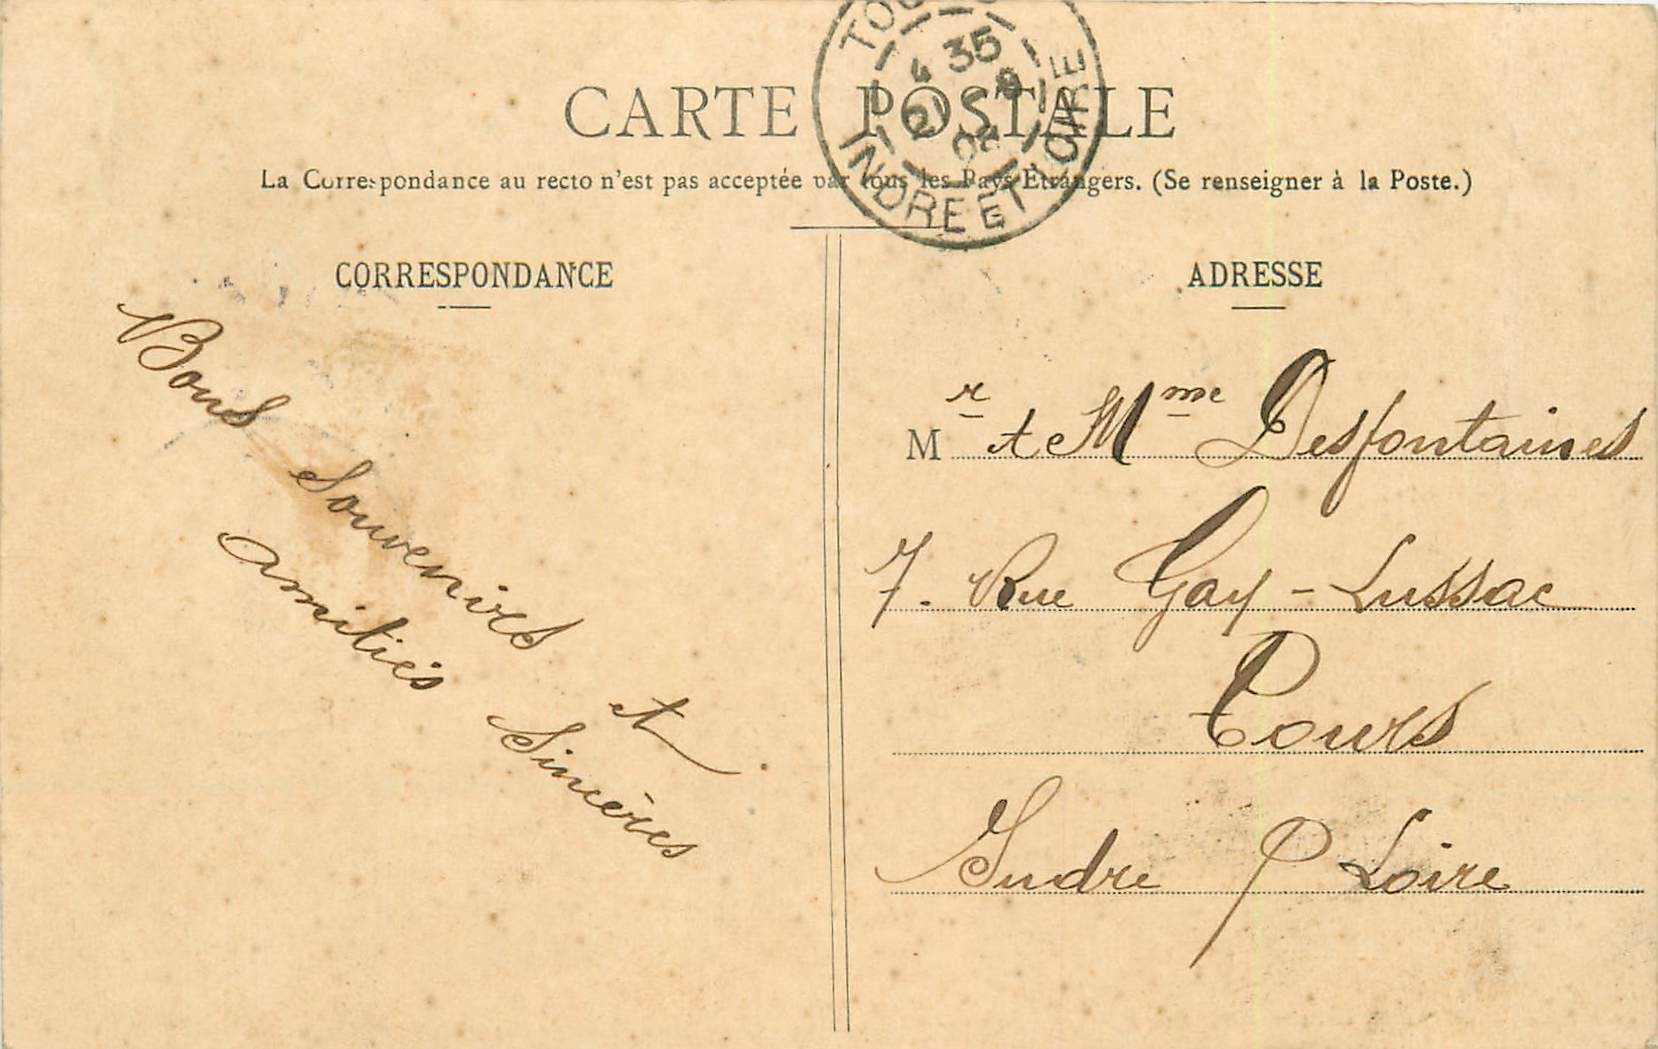 CARTE POSTALE
La Correspondance au recto n'est pas acceptée par tous les Pays Etrangers. (Se renseigner à la Poste.)
INDRE ET LOIRE
4 35
21 - 9
CORRESPONDANCE
Bons Souvenirs et
amitiés Sincères
ADRESSE
Mr et Mme Desfontaines
7. Rue Gay-Lussac
Tours
Indre & Loire